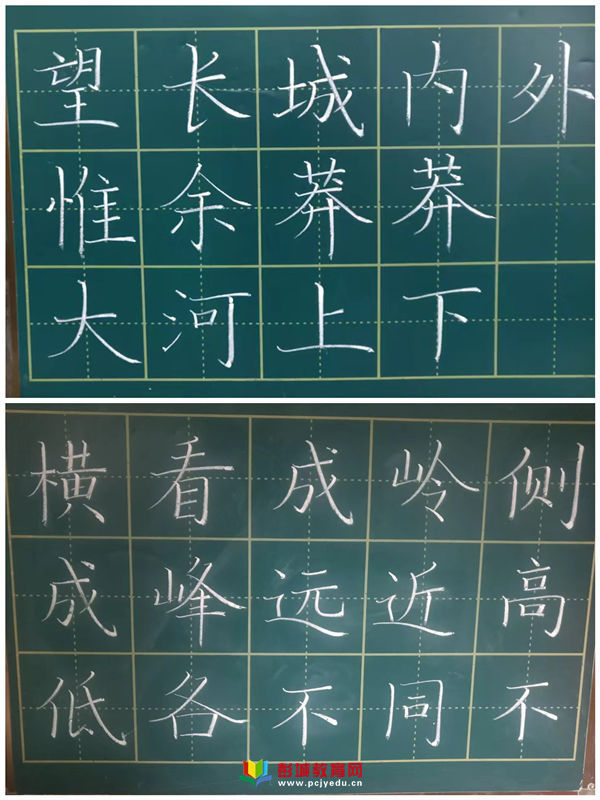 望长城内外
惟余莽莽
大河上下
横看成岭侧
成峰远近高
低各不同不
彭城教育网
www.pcjyedu.cn